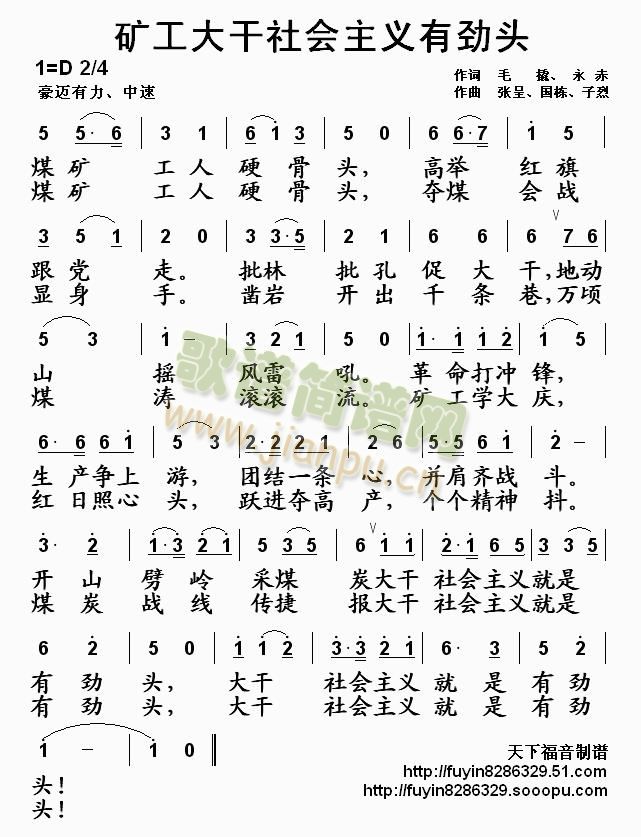 矿工大干社会主义有劲头
1=D 2/4
作词 毛 撬、永赤
豪迈有力、中速
作曲 张呈、国栋、子烈
5 5· 6 3 1 6 1 3 5 0 6 6·7 1 5
煤矿 工人硬骨头，高举 红旗
煤矿 工人硬骨头，夺煤 会战
3 5 1 2 0 3 3·5 2 1 6 6 6 7 6
跟党 走。批林 批孔促大干，地动
显身 手。凿岩 开出千条巷，万顷
5 3 1 – 3 2 1 5 0 1· 1 1 1 2 1 5
山 摇 风雷 吼。革命打冲锋，
煤 涛 滚滚 流。矿工学大庆，
6· 6 6 6 1 5 3 2· 2 2 1 2 6 5·5 6 1 2 –
生产争上游，团结一条心，并肩齐战斗。
红日照心头，跃进夺高产，个个精神抖。
3· 2 1·3 2 1 5 3 5 6· 1 2·1 6 5 1 2 3
开山劈岭采煤 炭大干社会主义就是
煤炭战线传捷 报大干社会主义就是
6 2 5 0 1 1 2 3·3 2 1 6· 3 5 2
有劲头，大干 社会主义就是有劲
有劲头，大干 社会主义就是有劲
1 – 1 0
头！
头！
天下福音制谱
http://fuyin8286329.51.com
http://fuyin8286329.sooopu.com
歌谱简谱网
www.jianpu.cn